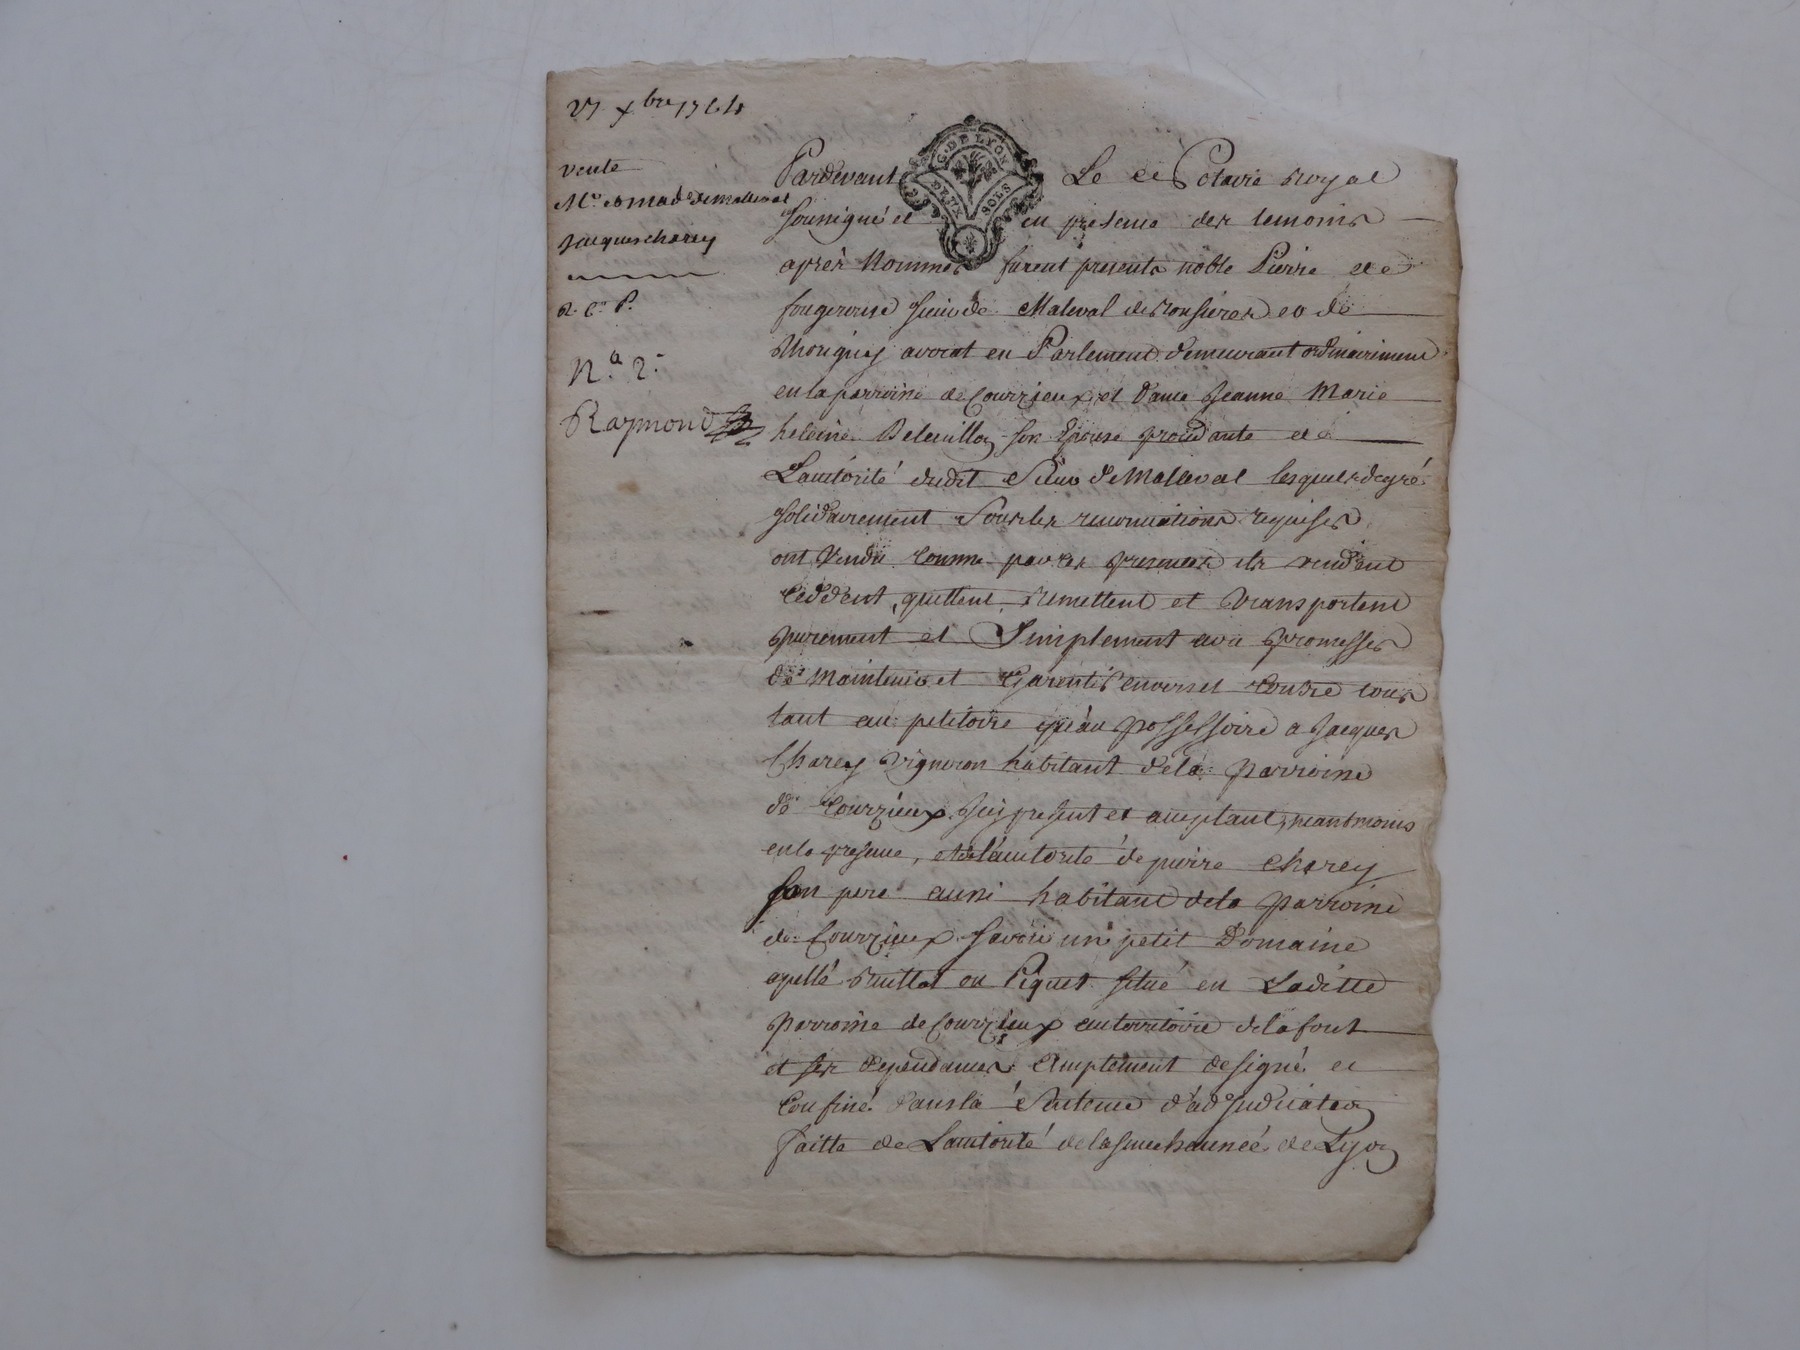 27 xbre 1764
vente
Mr et made de malleval
Jacques charey
N.a 2.
Raymond
G. DE LYON
DEUX SOLS
Pardevant Le Notaire Royal
soussigné et en presence des temoins
après Nommés furent presents noble Pierre
fougerouse sieur de Maleval de Ronsieres et de
avocat en Parlement demeurant ordinairement
en la parroisse de Courzieux et dame Jeanne Marie
heleine son Epouse procedante de
L'autorité dudit Sieur de Malleval lesquels de gré
solidairement sous les renonciations requises
ont vendu comme par ces presentes ils vendent
cèddent, quittent, remettent et transportent
purement et simplement avec promesses
de maintenir et garentir envers et contre tous
tant au petitoire qu'au possessoire a Jacques
Charey vigneron habitant de la parroisse
de Courzieux icy present et acceptant, neantmoins
en la presence, et de l'autorité de pierre charey
son pere aussi habitant de la parroisse
de Courzieux savoir un petit Domaine
apellé ou Piquet situé en Laditte
parroisse de Courzieux au territoire de la font
et ses dependances amplement designé et
confiné dans la Sentence d'adjudication
faitte de L'autorité de la senechaussée de Lyon